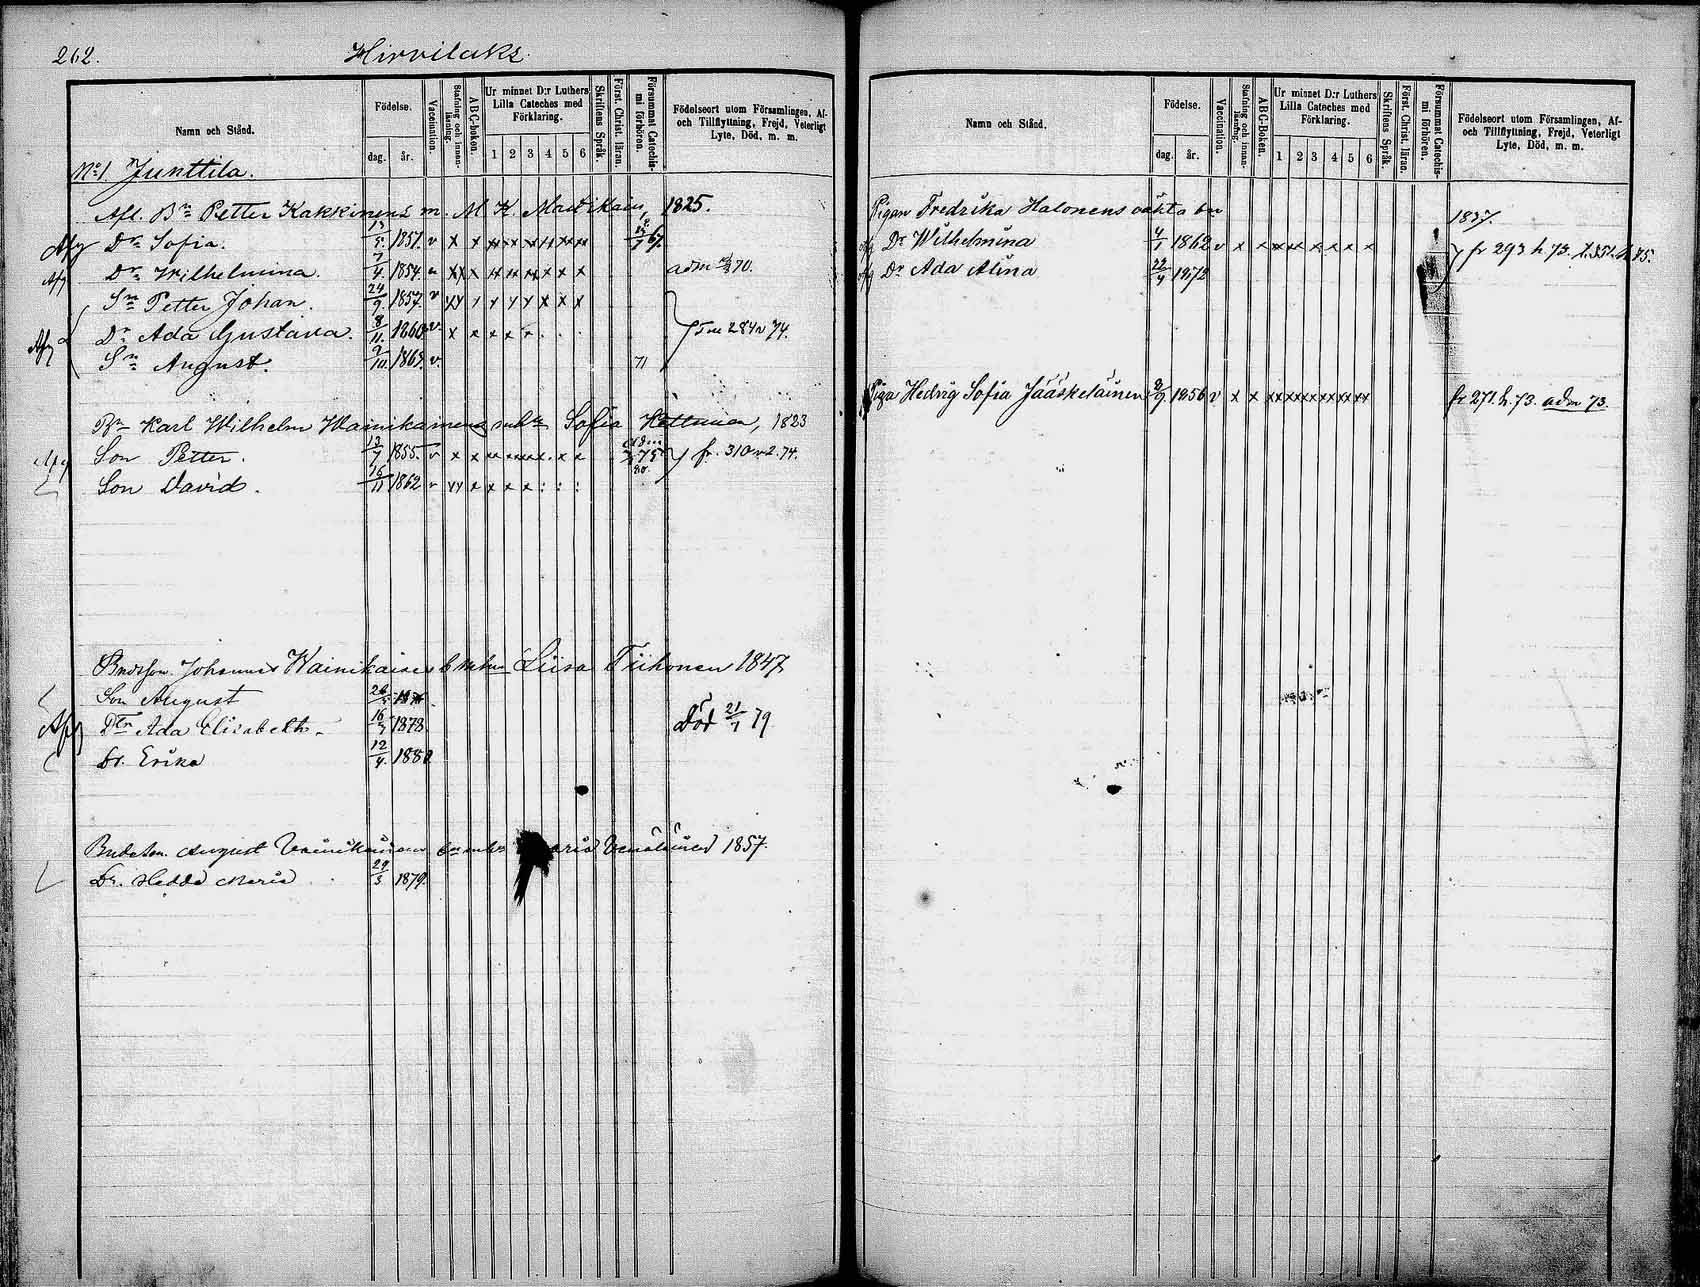 262.
Hirvilaks
Namn och Stånd.
Födelse.
dag. år.
Vaccination.
Stafning och innanläsning.
ABC-boken.
Ur minnet D:r Luthers Lilla Cateches med Förklaring.
1 2 3 4 5 6
Skriftens Språk.
Först. Christ. läran.
Försummat Catechismi förhören.
Födelseort utom Församlingen, Af- och Tillflyttning, Frejd, Veterligt Lyte, Död, m. m.
No 1 Junttila.
Afl. Bn Petter Kakkinens m. M. K. 1825.
Dr Sofia. 5. 1851. v x x 67
Dr Wilhelmina. 7/4. 1854 adm 70.
Sn Petter Johan. 24/9. 1857. v
Dr Ada Gustava. 8/11. 1860. v.
Sn August. 9/10. 1863. v. 71
284 v 74.
Bn Karl Wilhelm Wainikainens Sofia 1823
Son Petter. 1855. v adm 75 fr. 310 v 2. 74.
Son David. 16/11 1862
Johannes Wainikaises Liisa Tiihonen 1847
Son August
Dtr Ada Elisabeth 16/7 1878 Död 21/7 79
Dr. Erika 12/4. 1880.
August Maria 1857.
Dr. Hedda Maria 29/3 1879.
Namn och Stånd.
Födelse.
dag. år.
Vaccination.
Stafning och innanläsning.
ABC-Boken.
Ur minnet D:r Luthers Lilla Cateches med Förklaring.
1 2 3 4 5 6
Skriftens Språk.
Först. Christ. läran.
Försummat Catechismi förhören.
Födelseort utom Församlingen, Af- och Tillflyttning, Frejd, Veterligt Lyte, Död, m. m.
Pigan Fredrika Halonens oäkta bn 1837.
Dr Wilhelmina 4/1 1862 v x fr 293 h 73.
Dr Ada Alina 1872
Piga Hedvig Sofia Jääskeläinen 1856 v x x fr 271. h. 73. adm 73.